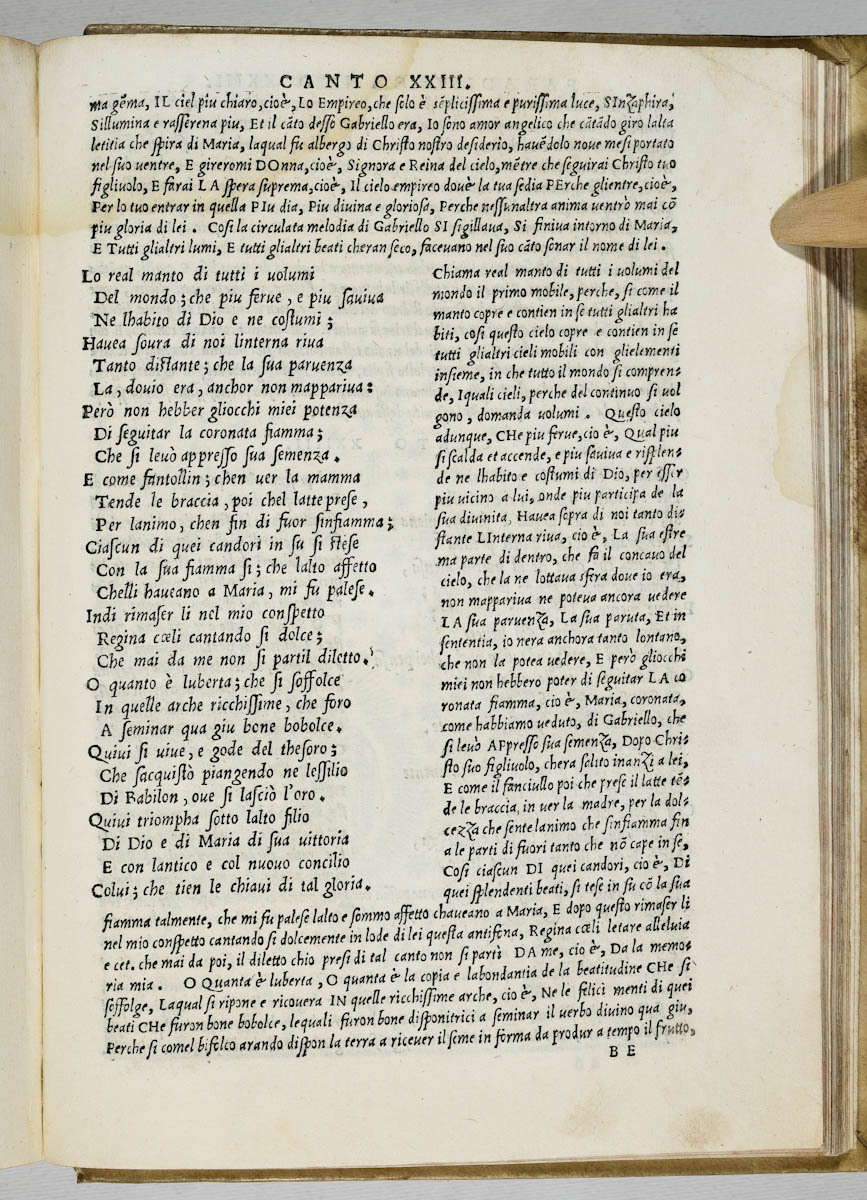 CANTO XXIII.
ma gẽma, IL ciel piu chiaro, cioè, Lo Empireo, che solo è sẽplicissima e purissima luce, SInzaphira,
Sillumina e rasserena piu, Et il cãto desso Gabriello era, Io sono amor angelico che cãtãdo giro lalta
letitia che spira di Maria, laqual fu albergo di Christo nostro desiderio, hauẽdolo noue mesi portato
nel suo uentre, E gireromi DOnna, cioè, Signora e Reina del cielo, mẽtre che seguirai Christo tuo
figliuolo, E farai LA spera suprema, cioè, Il cielo empireo douè la tua sedia PErche glientre, cioè,
Per lo tuo entrar in quella PIu dia, Piu diuina e gloriosa, Perche nessunaltra anima uentrò mai cõ
piu gloria di lei . Cosi la circulata melodia di Gabriello SI sigillaua, Si finiua intorno di Maria,
E Tutti glialtri lumi, E tutti glialtri beati cheran seco, faceuano nel suo cãto sonar il nome di lei .
Lo real manto di tutti i uolumi
Del mondo ; che piu ferue, e piu sauiua
Ne lhabito di Dio e ne costumi ;
Hauea soura di noi linterna riua
Tanto distante ; che la sua paruenza
La, douio era, anchor non mappariua :
Però non hebber gliocchi miei potenza
Di seguitar la coronata fiamma ;
Che si leuò appresso sua semenza .
E come fantollin ; chen uer la mamma
Tende le braccia, poi chel latte prese,
Per lanimo, chen fin di fuor sinfiamma ;
Ciascun di quei candori in su si stese
Con la sua fiamma si ; che lalto affetto
Chelli haueano a Maria, mi fu palese .
Indi rimaser li nel mio conspetto
Regina cœli cantando si dolce ;
Che mai da me non si partil diletto .
O quanto è luberta ; che si soffolce
In quelle arche ricchissime, che foro
A seminar qua giu bone bobolce .
Quiui si uiue, e gode del thesoro ;
Che sacquistò piangendo ne lessilio
Di Babilon, oue si lasciò l'oro .
Quiui triompha sotto lalto filio
Di Dio e di Maria di sua uittoria
E con lantico e col nuouo concilio
Colui ; che tien le chiaui di tal gloria .
Chiama real manto di tutti i uolumi del
mondo il primo mobile, perche, si come il
manto copre e contien in se tutti glialtri ha
biti, cosi questo cielo copre e contien in se
tutti glialtri cieli mobili con glielementi
insieme, in che tutto il mondo si compren-
de, Iquali cieli, perche del continuo si uol
gono, domanda uolumi . Questo cielo
adunque, CHe piu ferue, cio è, Qual piu
si scalda et accende, e piu sauiua e risplen-
de ne lhabito e costumi di Dio, per esser
piu uicino a lui, onde piu participa de la
sua diuinita, Hauea sopra di noi tanto di-
stante LInterna riua, cio è, La sua estre
ma parte di dentro, che fa il concauo del
cielo, che la ne lottaua sfera doue io era,
non mappariua ne poteua ancora uedere
LA sua paruenza, La sua paruta, Et in
sententia, io nera anchora tanto lontano,
che non la potea uedere, E però gliocchi
miei non hebbero poter di seguitar LA co
ronata fiamma, cio è, Maria, coronata,
come habbiamo ueduto, di Gabriello, che
si leuò APpresso sua semenza, Dopo Chri-
sto suo figliuolo, chera salito inanzi a lei,
E come il fanciullo poi che prese il latte tẽ-
de le braccia, in uer la madre, per la dol-
cezza che sente lanimo che sinfiamma fin
a le parti di fuori tanto che nõ cape in se,
Cosi ciascun DI quei candori, cio è, Di
quei splendenti beati, si tese in su cõ la sua
fiamma talmente, che mi fu palese lalto e sommo affetto chaueano a Maria, E dopo questo rimaser li
nel mio conspetto cantando si dolcemente in lode di lei questa antifena, Regina cœli letare alleluia
e cet. che mai da poi, il diletto chio presi di tal canto non si partì DA me, cio è, Da la memo-
ria mia . O Quanta è luberta, O quanta è la copia e labondantia de la beatitudine CHe si
soffolge, Laqual si ripone e ricouera IN quelle ricchissime arche, cio è, Ne le felici menti di quei
beati CHe furon bone bobolce, lequali furon bone disponitrici a seminar il uerbo diuino qua giu,
Perche si comel bifolco arando dispon la terra a riceuer il seme in forma da produr a tempo il frutto,
B E